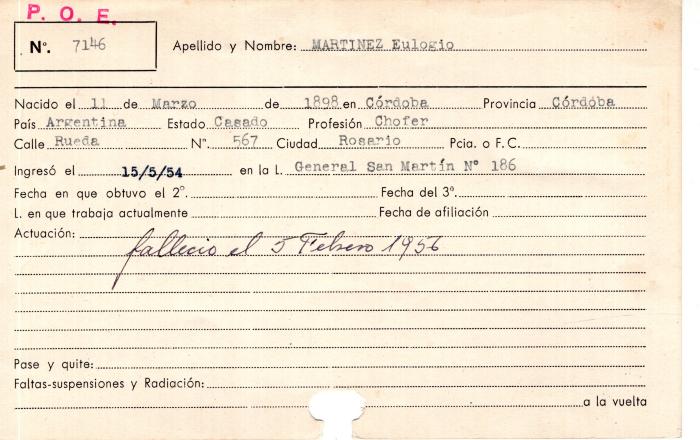 P. O. E.
Nº. 7146 Apellido y Nombre: MARTINEZ Eulogio
Nacido el 11 de Marzo de 1898 en Córdoba Provincia Córdoba
País Argentina Estado Casado Profesión Chofer
Calle Rueda Nº. 567 Ciudad Rosario Pcia. o F. C.
Ingresó el 15/5/54 en la L. General San Martín Nº 186
Fecha en que obtuvo el 2º. Fecha del 3º.
L. en que trabaja actualmente Fecha de afiliación
Actuación:
fallecio el 5 Febrero 1956
Pase y quite:
Faltas-suspensiones y Radiación:
a la vuelta